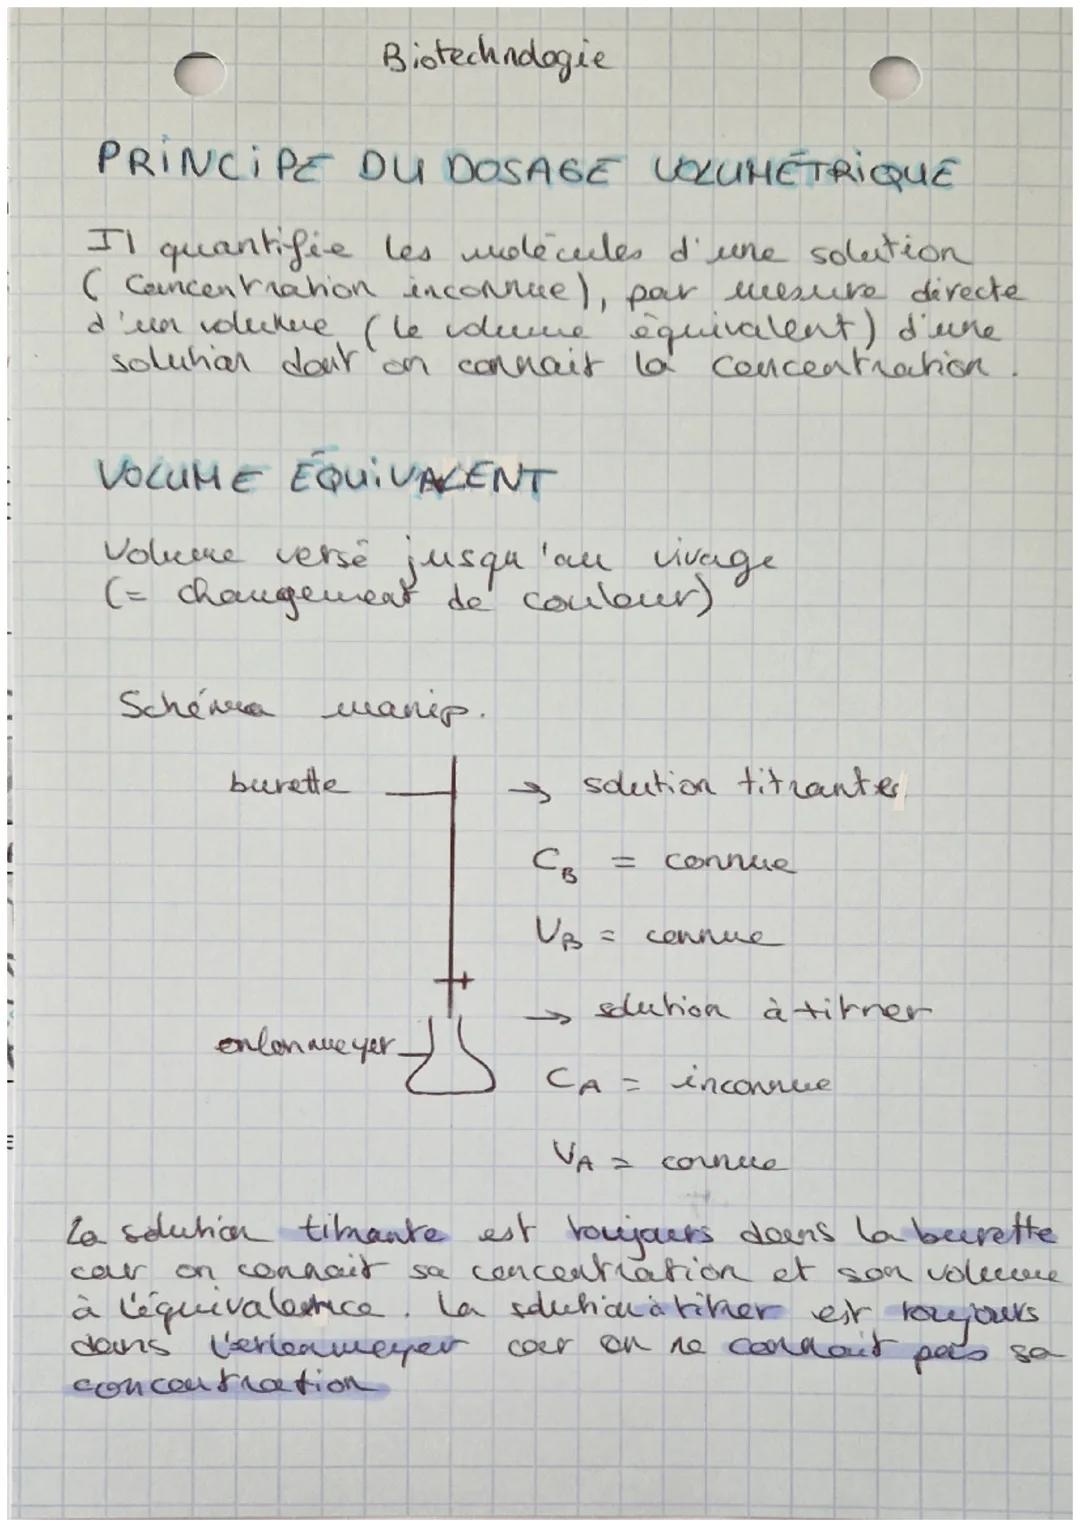 Biotechnologie
PRINCIPE DU DOSAGE VOLUMÉTRIQUE
Il quantifie les molécules d'une solution
( Concentration inconnue), par mesure directe
d'un volume (le volume équivalent) d'une
solution dont on connait la concentration.
VOLUME ÉQUIVALENT
Volume versé jusqu'au virage
(= changement de couleur)
Schéma manip.
burette → solution titrante
CB = connue
VB = connue
→ solution à titrer
erlenmeyer
CA = inconnue
VA = connue
La solution titrante est toujours dans la burette
car on connait sa concentration et son volume
à l'équivalence. La solution à titrer est toujours
dans l'erlenmeyer car on ne connait pas sa
concentration